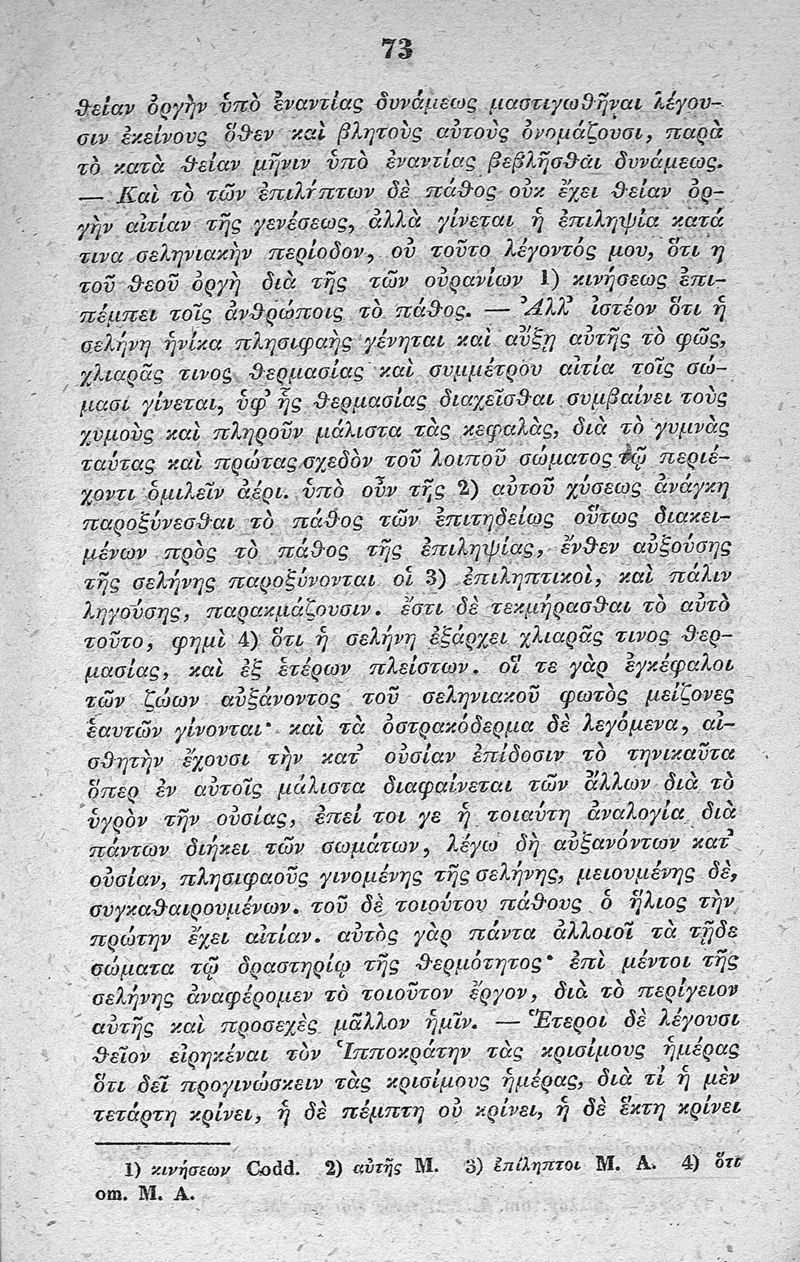 73
θείαν ὀργὴν ὑπὸ ἐναντίας δυνάμεως μαστιγωθῆναι λέγου-
σιν ἐκείνους ὅθεν καὶ βλητοὺς αὐτοὺς ὀνομάζουσι, παρὰ
τὸ κατὰ θείαν μῆνιν ὑπὸ ἐναντίας βεβλῆσθαι δυνάμεως.
— Καὶ τὸ τῶν ἐπιλήπτων δὲ πάθος οὐκ ἔχει θείαν ὀρ-
γὴν αἰτίαν τῆς γενέσεως, ἀλλὰ γίνεται ἡ ἐπιληψία κατά
τινα σεληνιακὴν περίοδον, οὐ τοῦτο λέγοντός μου, ὅτι η
τοῦ θεοῦ ὀργὴ διὰ τῆς τῶν οὐρανίων 1) κινήσεως ἐπι-
πέμπει τοῖς ἀνθρώποις τὸ πάθος. — Ἀλλ' ἰστέον ὅτι ἡ
σελήνη ἡνίκα πλησιφαὴς γένηται καὶ αὔξῃ αὐτῆς τὸ φῶς,
χλιαρᾶς τινος θερμασίας καὶ συμμέτρου αἰτία τοῖς σώ-
μασι γίνεται, ὑφ' ἧς θερμασίας διαχεῖσθαι συμβαίνει τοὺς
χυμοὺς καὶ πληροῦν μάλιστα τὰς κεφαλὰς, διὰ τὸ γυμνὰς
ταύτας καὶ πρώτας σχεδὸν τοῦ λοιποῦ σώματος τῷ περιέ-
χοντι ὁμιλεῖν ἀέρι. ὑπὸ οὖν τῆς 2) αὐτοῦ χύσεως ἀνάγκη
παροξύνεσθαι τὸ πάθος τῶν ἐπιτηδείως οὕτως διακει-
μένων πρὸς τὸ πάθος τῆς ἐπιληψίας, ἔνθεν αὐξούσης
τῆς σελήνης παροξύνονται οἱ 3) ἐπιληπτικοὶ, καὶ πάλιν
ληγούσης, παρακμάζουσιν. ἔστι δὲ τεκμήρασθαι τὸ αὐτὸ
τοῦτο, φημὶ 4) ὅτι ἡ σελήνη ἐξάρχει χλιαρᾶς τινος θερ-
μασίας, καὶ ἐξ ἑτέρων πλείστων. οἵ τε γὰρ ἐγκέφαλοι
τῶν ζώων αὐξάνοντος τοῦ σεληνιακοῦ φωτὸς μείζονες
ἑαυτῶν γίνονται· καὶ τὰ ὀστρακόδερμα δὲ λεγόμενα, αἰ-
σθητὴν ἔχουσι τὴν κατ' οὐσίαν ἐπίδοσιν τὸ τηνικαῦτα
ὅπερ ἐν αὐτοῖς μάλιστα διαφαίνεται τῶν ἄλλων διὰ τὸ
ὑγρὸν τὴν οὐσίας, ἐπεί τοι γε ἡ τοιαύτη ἀναλογία διὰ
πάντων διήκει τῶν σωμάτων, λέγω δὴ αὐξανόντων κατ'
οὐσίαν, πλησιφαοῦς γινομένης τῆς σελήνης, μειουμένης δὲ,
συγκαθαιρουμένων. τοῦ δὲ τοιούτου πάθους ὁ ἥλιος τὴν
πρώτην ἔχει αἰτίαν. αὐτὸς γὰρ πάντα ἀλλοιοῖ τὰ τῇδε
σώματα τῷ δραστηρίῳ τῆς θερμότητος· ἐπὶ μέντοι τῆς
σελήνης ἀναφέρομεν τὸ τοιοῦτον ἔργον, διὰ τὸ περίγειον
αὐτῆς καὶ προσεχὲς μᾶλλον ἡμῖν. — Ἕτεροι δὲ λέγουσι
θεῖον εἰρηκέναι τὸν Ἱπποκράτην τὰς κρισίμους ἡμέρας
ὅτι δεῖ προγινώσκειν τὰς κρισίμους ἡμέρας, διὰ τί ἡ μὲν
τετάρτη κρίνει, ἡ δὲ πέμπτη οὐ κρίνει, ἡ δὲ ἕκτη κρίνει
1) κινήσεων Codd. 2) αὐτῆς M. 3) ἐπίληπτοι M. A. 4) ὅτι
om. M. A.